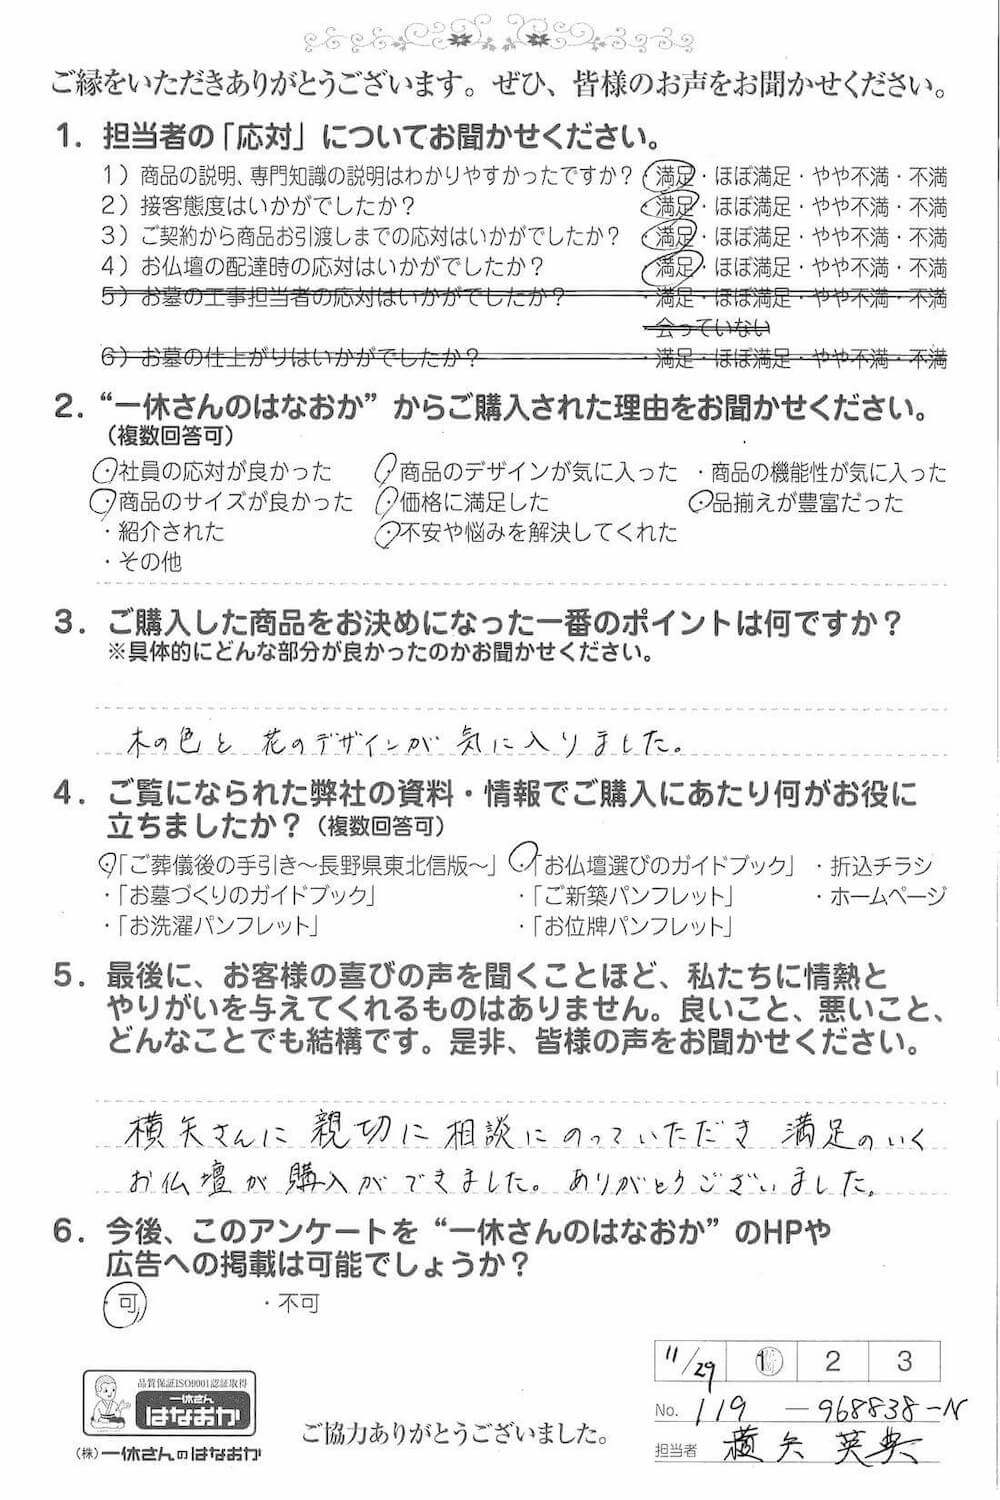 ご縁をいただきありがとうございます。ぜひ、皆様のお声をお聞かせください。
1. 担当者の「応対」についてお聞かせください。
1）商品の説明、専門知識の説明はわかりやすかったですか？ ・満足・ほぼ満足・やや不満・不満
2）接客態度はいかがでしたか？ ・満足・ほぼ満足・やや不満・不満
3）ご契約から商品お引渡しまでの応対はいかがでしたか？ ・満足・ほぼ満足・やや不満・不満
4）お仏壇の配達時の応対はいかがでしたか？ ・満足・ほぼ満足・やや不満・不満
5）お墓の工事担当者の応対はいかがでしたか？ ・満足・ほぼ満足・やや不満・不満
・会っていない
6）お墓の仕上がりはいかがでしたか？ ・満足・ほぼ満足・やや不満・不満
2. “一休さんのはなおか” からご購入された理由をお聞かせください。
（複数回答可）
・社員の応対が良かった ・商品のデザインが気に入った ・商品の機能性が気に入った
・商品のサイズが良かった ・価格に満足した ・品揃えが豊富だった
・紹介された ・不安や悩みを解決してくれた
・その他
3. ご購入した商品をお決めになった一番のポイントは何ですか？
※具体的にどんな部分が良かったのかお聞かせください。
木の色と 花のデザインが 気に入りました。
4. ご覧になられた弊社の資料・情報でご購入にあたり何がお役に
立ちましたか？（複数回答可）
・「ご葬儀後の手引き～長野県東北信版～」 ・「お仏壇選びのガイドブック」 ・折込チラシ
・「お墓づくりのガイドブック」 ・「ご新築パンフレット」 ・ホームページ
・「お洗濯パンフレット」 ・「お位牌パンフレット」
5. 最後に、お客様の喜びの声を聞くことほど、私たちに情熱と
やりがいを与えてくれるものはありません。良いこと、悪いこと、
どんなことでも結構です。是非、皆様の声をお聞かせください。
横矢さんに 親切に 相談にのっていただき 満足のいく
お仏壇が 購入ができました。ありがとうございました。
6. 今後、このアンケートを “一休さんのはなおか” のHPや
広告への掲載は可能でしょうか？
・可 ・不可
11/29 1 2 3
品質保証ISO9001認証取得
一休さん
はなおか
（株）一休さんのはなおか
ご協力ありがとうございました。
No. 119 -968838-N
担当者 横矢 英典